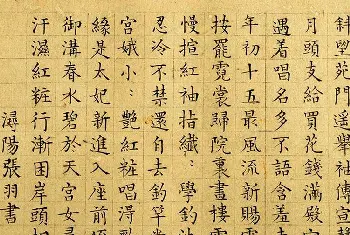 斜望苑門遥舉袖傳宣
月頭支給買花錢滿殿宮
遇着唱名多不語含羞走
年初十五最風流新賜雲
按罷霓裳歸院裏畫樓雲
慢揎紅袖指纖〻學釣
忍冷不禁還自去釣竿
宮娥小〻艷紅粧唱淂
緣是太妃新進入座前
御溝春水碧於天宮女
汗濕紅粧行漸困岸頭
潯陽張羽書